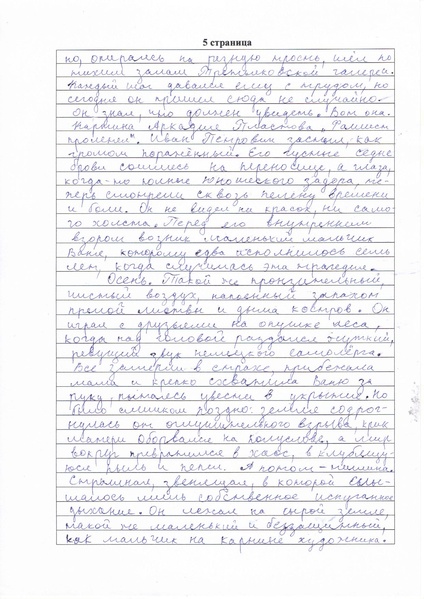 5 страница
но, опираясь на резную трость, шёл по
тихим залам Третьяковской галереи.
Каждый шаг давался ему с трудом, но
сегодня он пришел сюда не случайно.
Он знал, что должен увидеть. Вот она.
Картина Аркадия Пластова „Фашист
пролетел". Иван Петрович застыл, как
громом поражённый. Его густые седые
брови сошлись на переносице, а глаза,
когда-то полные юношеского задора, те-
перь смотрели сквозь пелену времени
и боли. Он не видел ни красок, ни само-
го холста. Перед его внутренним
взором возник маленький мальчик
Ваня, которому едва исполнилось семь
лет, когда случилась эта трагедия.
Осень. Такой же пронзительный,
чистый воздух, напоенный запахом
прелой листвы и дыма костров. Он
играл с друзьями на опушке леса,
когда над головой раздался жуткий,
ревущий звук немецкого самолёта.
Все замерли в страхе, прибежала
мама и крепко схватила Ваню за
руку, пытаясь увести в укрытие. Но
было слишком поздно: земля содрог-
нулась от оглушительного взрыва, крик
матери оборвался на полуслове, а мир
вокруг превратился в хаос, в клубящу-
юся пыль и пепел. А потом – тишина.
Страшная, звенящая, в которой слы-
шалось лишь собственное испуганное
дыхание. Он лежал на сырой земле,
такой же маленький и беззащитный,
как мальчик на картине художника.